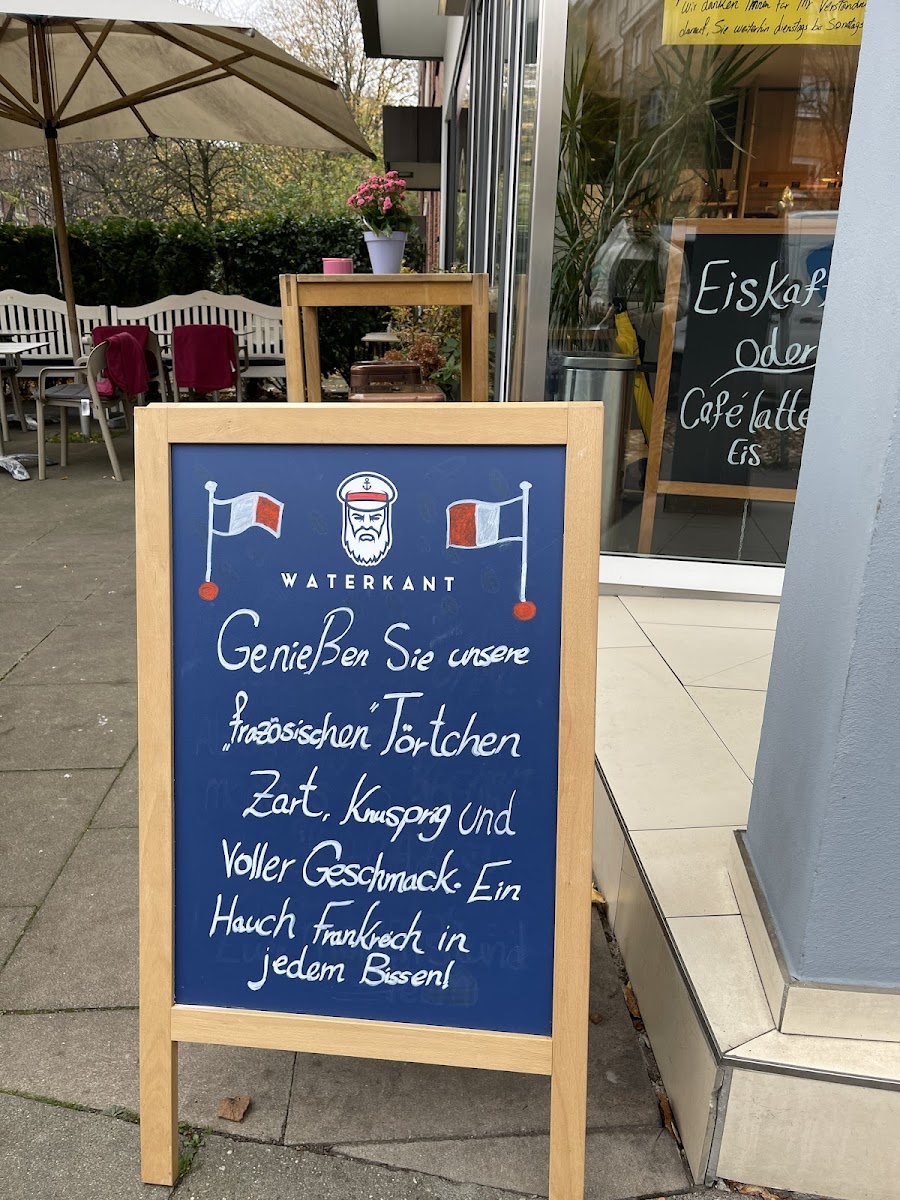 Wir danken Ihnen für Ihr Verständnis
darauf, Sie weiterhin dienstags bis Sonntags
Eiskaf
oder
Café latte
Eis
WATERKANT
Genießen Sie unsere
„französischen" Törtchen
Zart, Knusprig und
Voller Geschmack. Ein
Hauch Frankreich in
jedem Bissen!